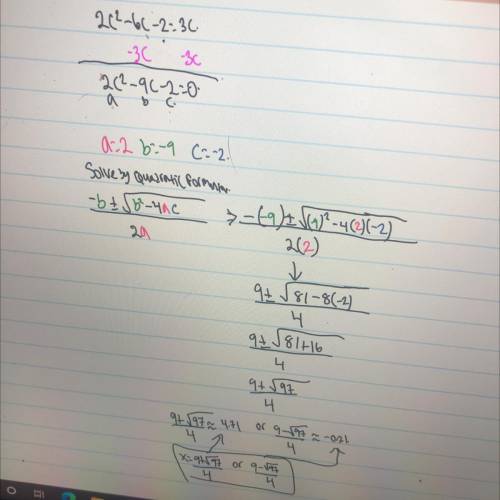 2c²-6c-2=3c
-3c -3c
2c²-9c-2=0.
a b c.
a=2 b=-9 c=-2.
Solve by quadratic formula.
-b±√b²-4ac / 2a => -(-9)±√(-9)²-4(2)(-2) / 2(2)
↓
9±√81-8(-2) / 4
9±√81+16 / 4
9±√97 / 4
9+√97 / 4 ≈ 4.71 or 9-√97 / 4 ≈ -0.21
x=9+√97 / 4 or 9-√97 / 4